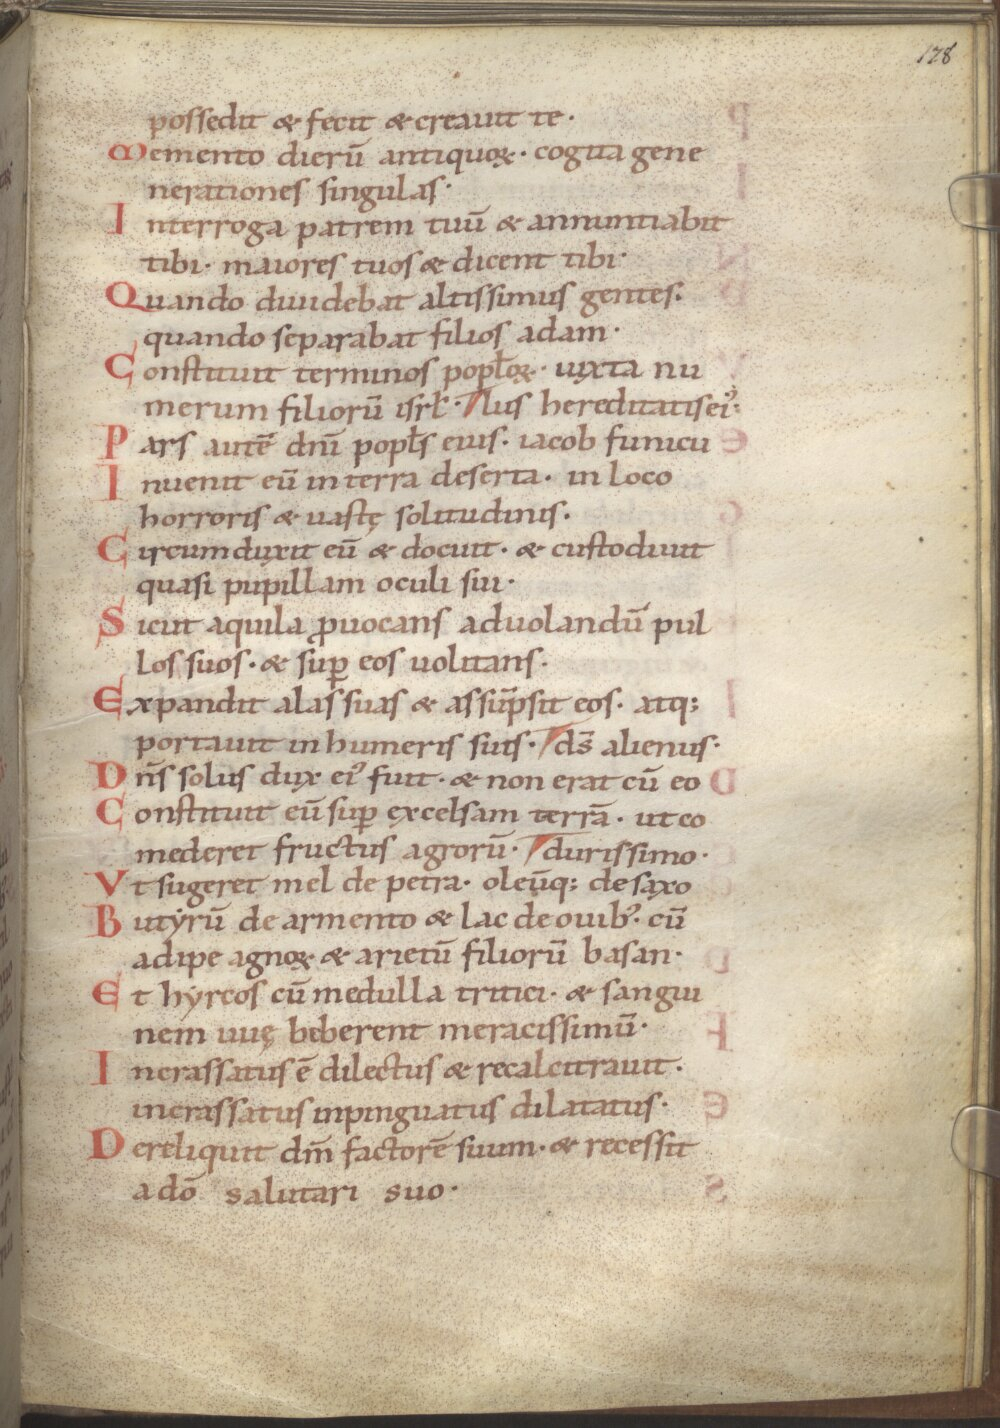 128
possedit & fecit & creauit te·
Memento dierū antiquoꝝ· cogita gene
nerationes singulas·
Interroga patrem tuū & annuntiabit
tibi· maiores tuos & dicent tibi·
Quando diuidebat altissimus gentes.
quando separabat filios adam·
Constituit terminos popl̄oꝝ· iuxta nu
merum filiorū isrl̄· lus hereditatis ei᾿:
Pars autē dn̄i popl̄s eius· iacob funicu
Inuenit eū in terra deserta· in loco
horroris & uastę solitudinis.
Circumduxit eū & docuit· & custodiuit
quasi pupillam oculi sui·
Sicut aquila ꝓuocans aduolandū pul
los suos· & suꝑ eos uolitans·
Expandit alas suas & assūpsit eos· atq;
portauit in humeris suis· ds̄ alienus·
Dn̄s solus dux ei᾿ fuit· & non erat cū eo
Constituit eū suꝑ excelsam terrā· ut co
mederet fructus agrorū· durissimo·
Vt sugeret mel de petra· oleūq; de saxo
Butyrū de armento & lac de ouib᾿· cū
adipe agnoꝝ & arietū filiorū basan·
Et hyrcos cū medulla tritici· & sangui
nem uuę biberent meracissimū·
Incrassatus ē dilectus & recalcitrauit·
incrassatus inpinguatus dilatatus·
Dereliquit dm̄ factorē suum· & recessit
a dō salutari suo·